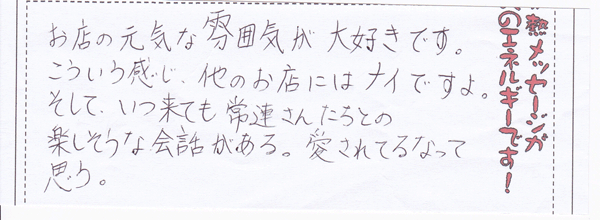 お店の元気な雰囲気が大好きです。
こういう感じ、他のお店にはナイですよ。
そして、いつ来ても常連さんたちとの
楽しそうな会話がある。愛されてるなって
思う。
熱メッセージが
のエネルギーです!